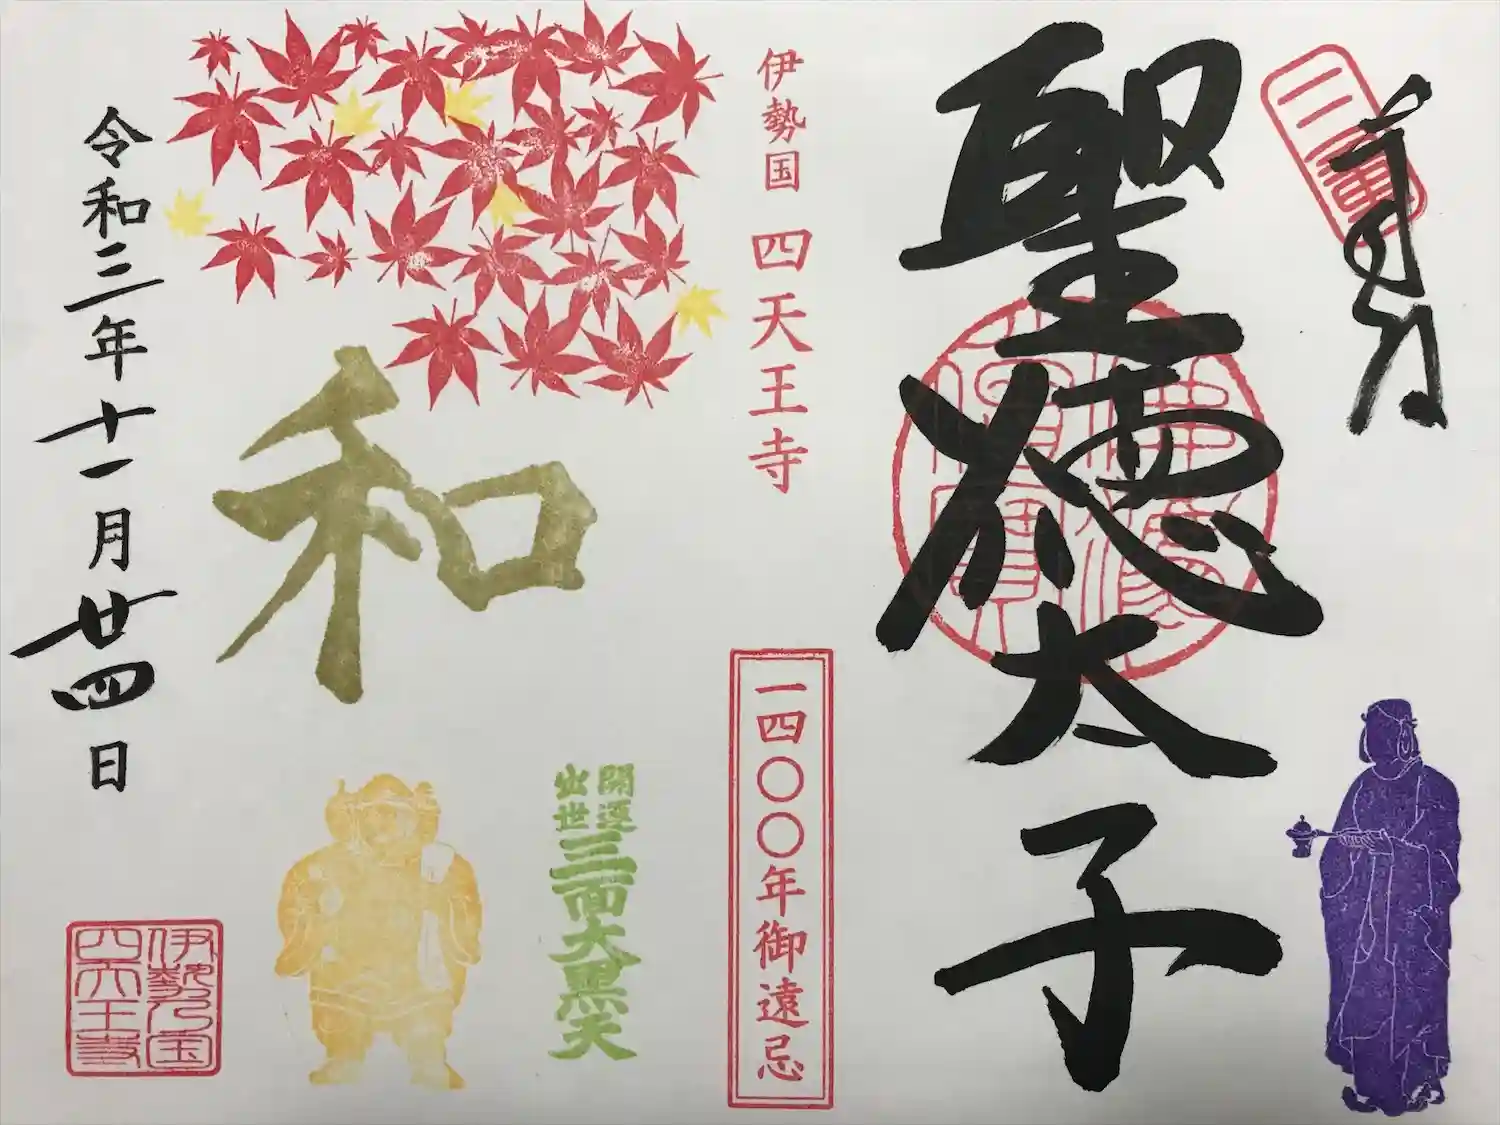 奉拝
三重
聖徳太子
佛法僧寶
伊勢国 四天王寺
一四〇〇年御遠忌
和
開運
出世
三面大黒天
令和三年十一月廿四日
伊勢乃国
四天王寺